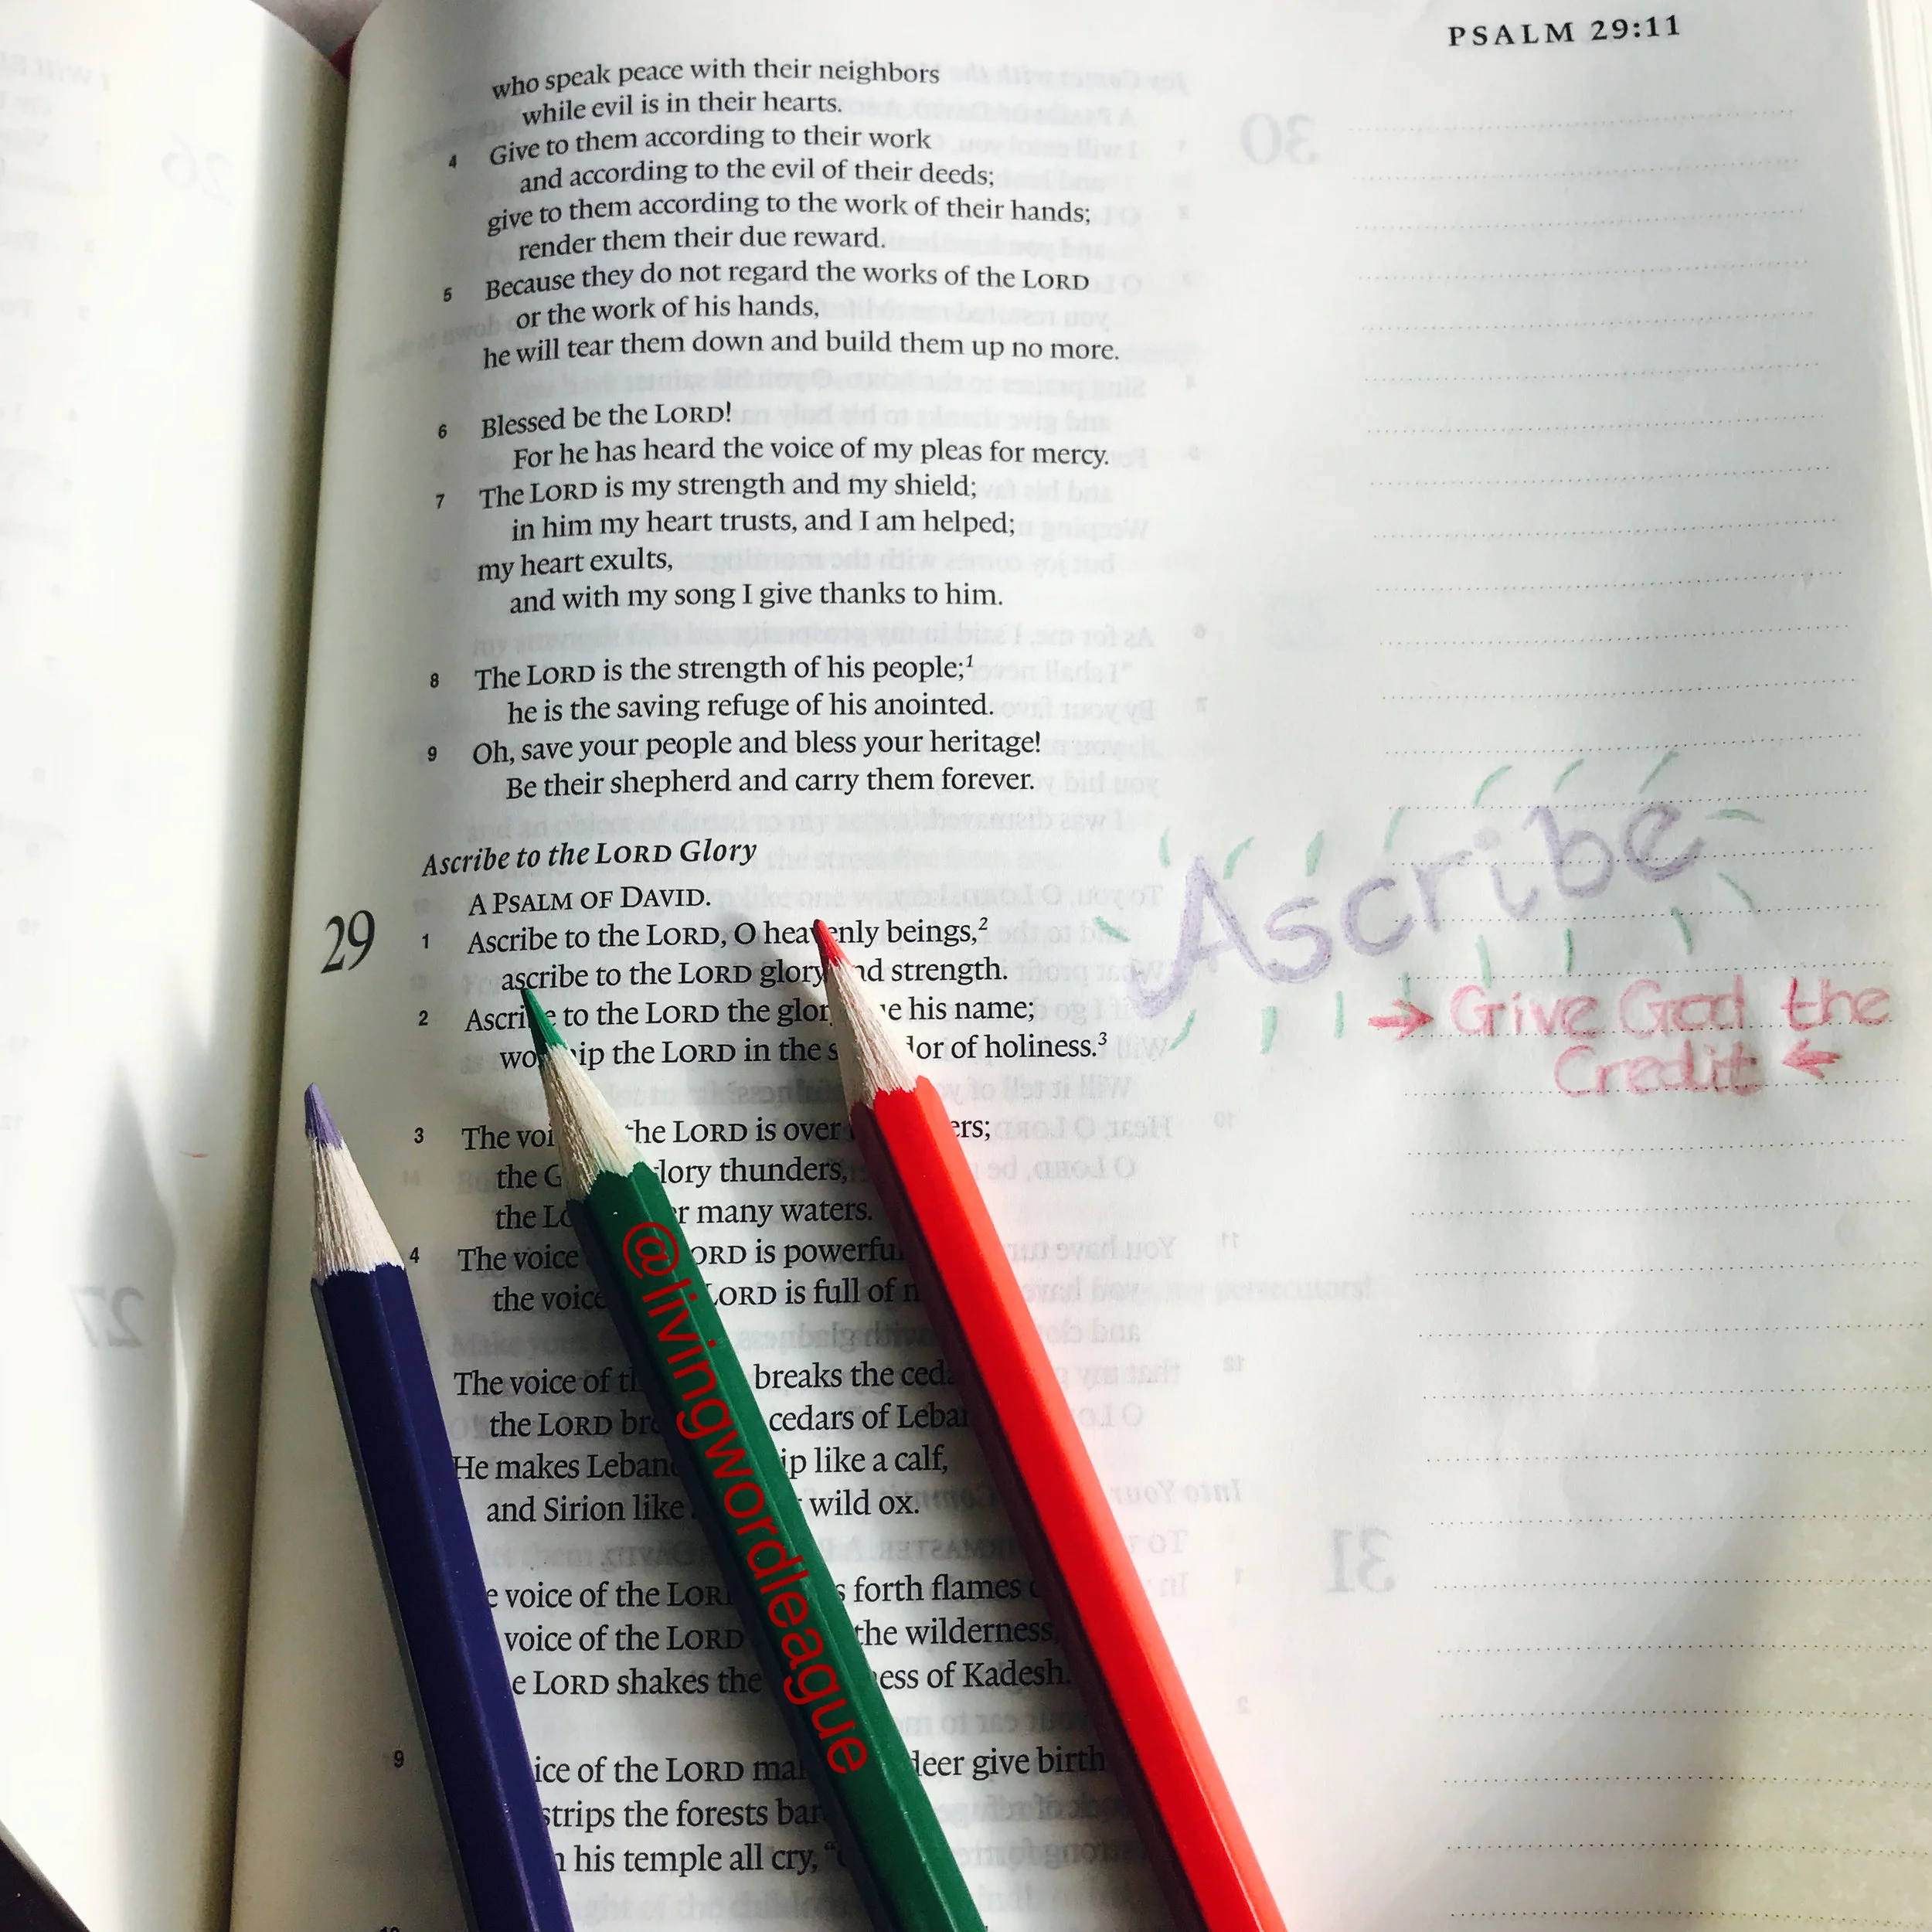 PSALM 29:11
who speak peace with their neighbors
while evil is in their hearts.
4 Give to them according to their work
and according to the evil of their deeds;
give to them according to the work of their hands;
render them their due reward.
5 Because they do not regard the works of the LORD
or the work of his hands,
he will tear them down and build them up no more.
6 Blessed be the LORD!
For he has heard the voice of my pleas for mercy.
7 The LORD is my strength and my shield;
in him my heart trusts, and I am helped;
my heart exults,
and with my song I give thanks to him.
8 The LORD is the strength of his people;¹
he is the saving refuge of his anointed.
9 Oh, save your people and bless your heritage!
Be their shepherd and carry them forever.
Ascribe to the LORD Glory
A PSALM OF DAVID.
29 1 Ascribe to the LORD, O heavenly beings,²
ascribe to the LORD glory and strength.
2 Ascribe to the LORD the glory his name;
worship the LORD in the of holiness.³
3 The the LORD is over
the glory thunders,
the many waters.
4 The voice LORD is powerful
the voice LORD is full of
The voice of breaks the
the LORD cedars of
He makes like a calf,
and Sirion like wild ox.
voice of the LORD forth flames
voice of the LORD the wilderness,
LORD shakes the of Kadesh.
9 of the LORD deer give birth
strips the forests
his temple all cry, "
Ascribe
→ Give God the
Credit ←
@livingwordleague